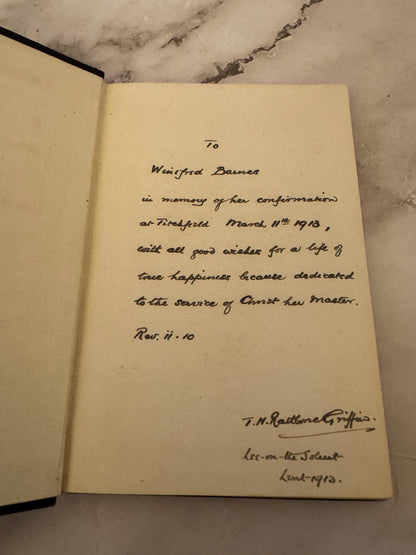 To
Winifred Barnes
in memory of her confirmation
at Titchfield March 11th 1913,
with all good wishes for a life of
true happiness because dedicated
to the service of Christ her Master.
Rev. ii. 10
T. N. Rathbone Griffin.
Lee-on-the Solent
Lent 1913.